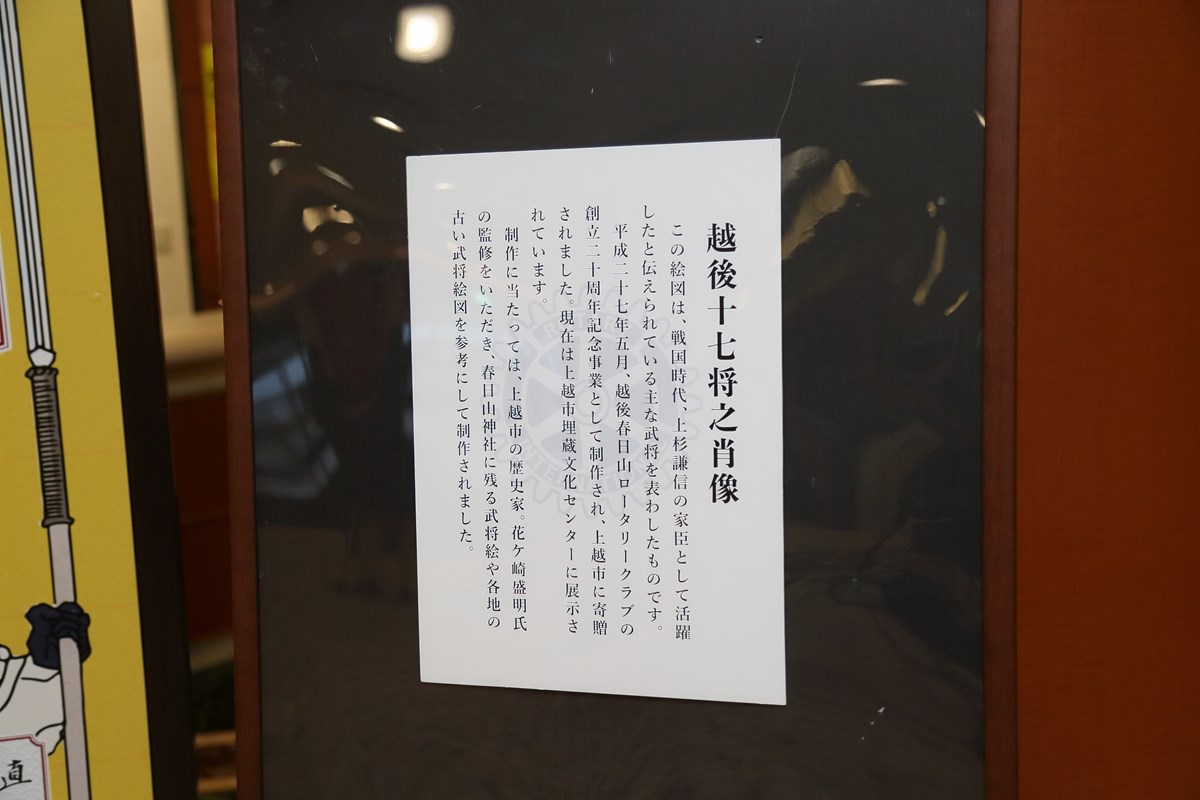 越後十七将之肖像
この絵図は、戦国時代、上杉謙信の家臣として活躍
したと伝えられている主な武将を表わしたものです。
平成二十七年五月、越後春日山ロータリークラブの
創立二十周年記念事業として制作され、上越市に寄贈
されました。現在は上越市埋蔵文化センターに展示さ
れています。
制作に当たっては、上越市の歴史家。花ケ崎盛明氏
の監修をいただき、春日山神社に残る武将絵や各地の
古い武将絵図を参考にして制作されました。
ROTARY
INTERNATIONAL
直